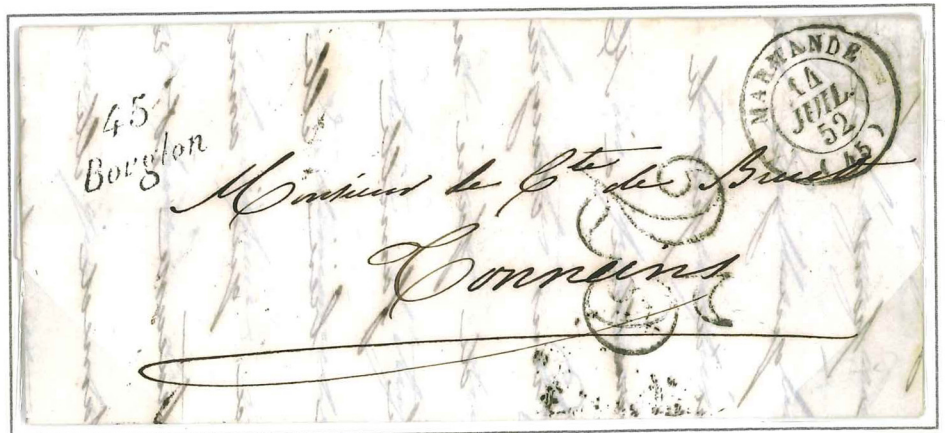 45
Bouglon
MARMANDE
14
JUIL.
52
(45)
Monsieur le Cte de
Tonneins